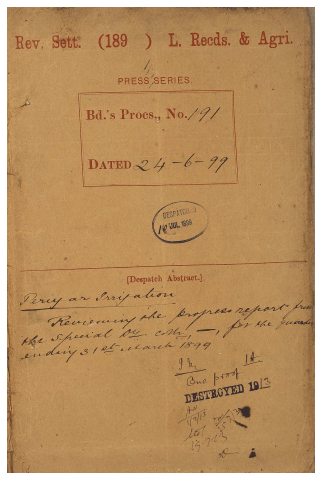 Rev. Sett. (189 ) L. Recds. & Agri.
PRESS SERIES.
Bd.'s Procs., No. 191
DATED 24-6-99
DESPATCHED
JUL. 1899
(Despatch Abstract.)
Periyar Irrigation
Reviewing the progress report from
the Special Dy. Collr. —, for the quarter
ending 31st March 1899
One proof
DESTROYED 1913